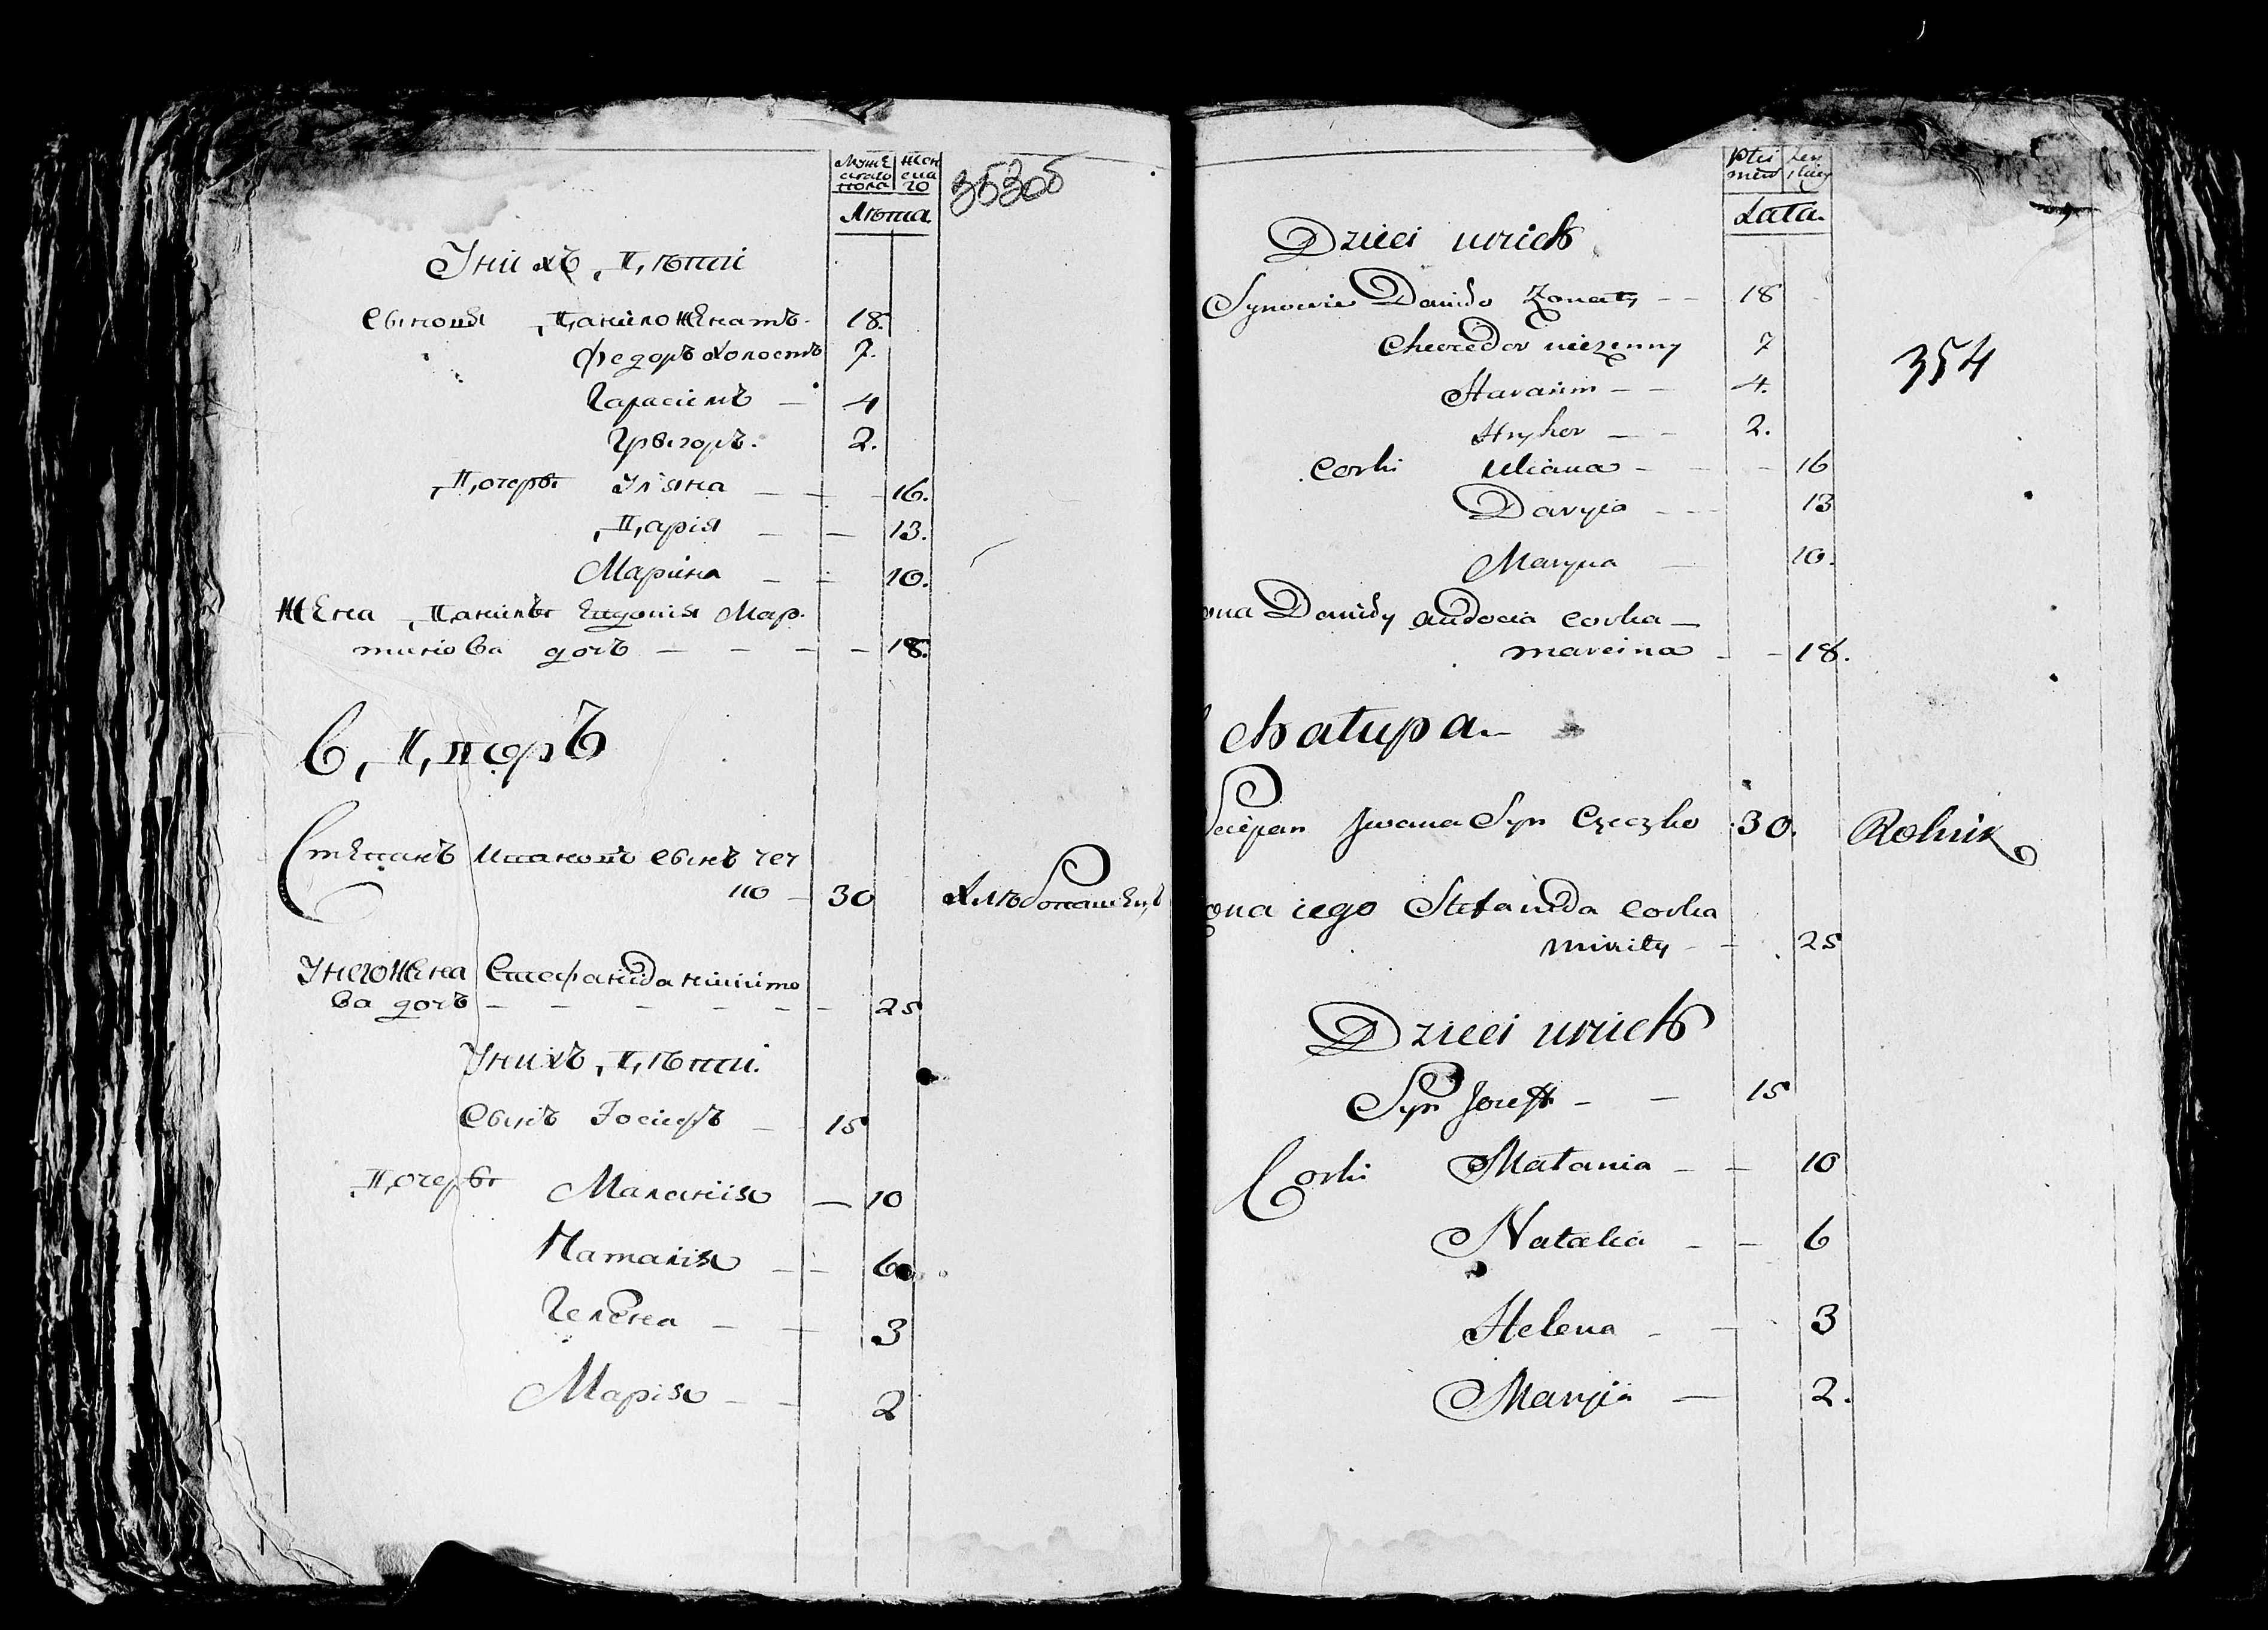 муже ского пола
жен ска го
Лѣта
353об
Унихъ дѣти
Сыновя Данило женатъ. 18.
Федоръ холостъ 7.
Гарасимъ 4
Григоръ. 2.
дочеры Уляна 16.
Дарія 13.
Марина 10.
Жена Данилы Евдокия Мар-
тинова дочъ 18.
Степанъ Ивановъ сынъ Чеч
ко 30 Хлѣбопашецъ
Унего жена Стефанида Никито
ва дочъ 25
Унихъ дѣти.
Сынъ Іосифъ 15
дочеры Маланія 10
Наталія 6
Гелена 3
Марія 2
Lata.
Dzieci unich
Synowie Daniło Żonaty 18
Chwedor nieżenny 7
354
Harasim 4.
Hryhor 2.
Corki Uliana 16
Daryia 13
Maryna 10.
ona Daniły Audocia corka
Marcina 18.
Chałupa
Sciepan Jwana Syn Czeczko 30. Rolnik
ona iego Stefanida corka
Mikity 25
Dzieci unich
Syn Jozeff 15
Corki Małania 10
Natalia 6
Helena 3
Maryia 2.